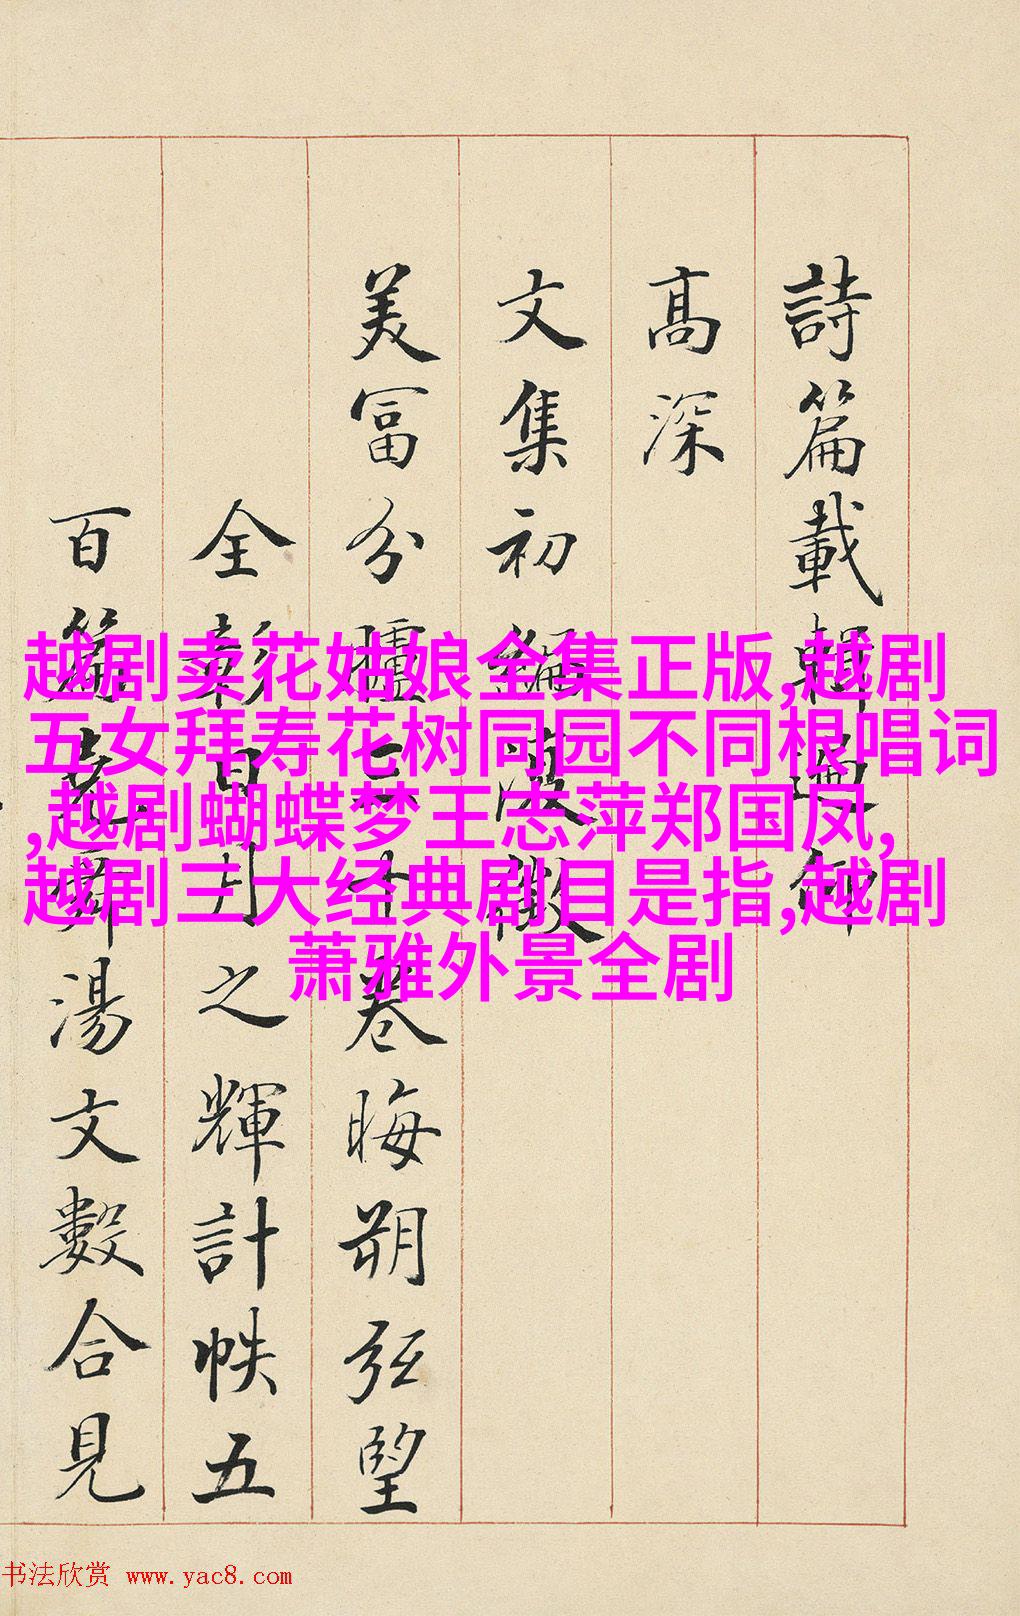 詩篇載輯邇仰
高深
文集初編復徵
美富分臚三十卷晦朔弦望
全彰日月之輝計帙五
百篇堯舜湯文數合見
越剧卖花姑娘全集正版,越剧
五女拜寿花树同园不同根唱词
,越剧蝴蝶梦王志萍郑国凤,
越剧三大经典剧目是指,越剧
萧雅外景全剧
书法欣赏 www.yac8.com